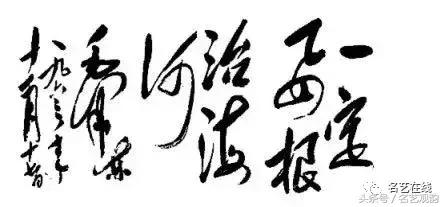 一定
要根
治海
河
毛泽东
一九六三年
十一月十七日
名艺在线
头条号 / 名艺观韵